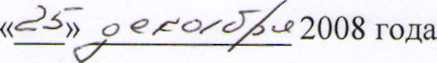 «25» декабря 2008 года